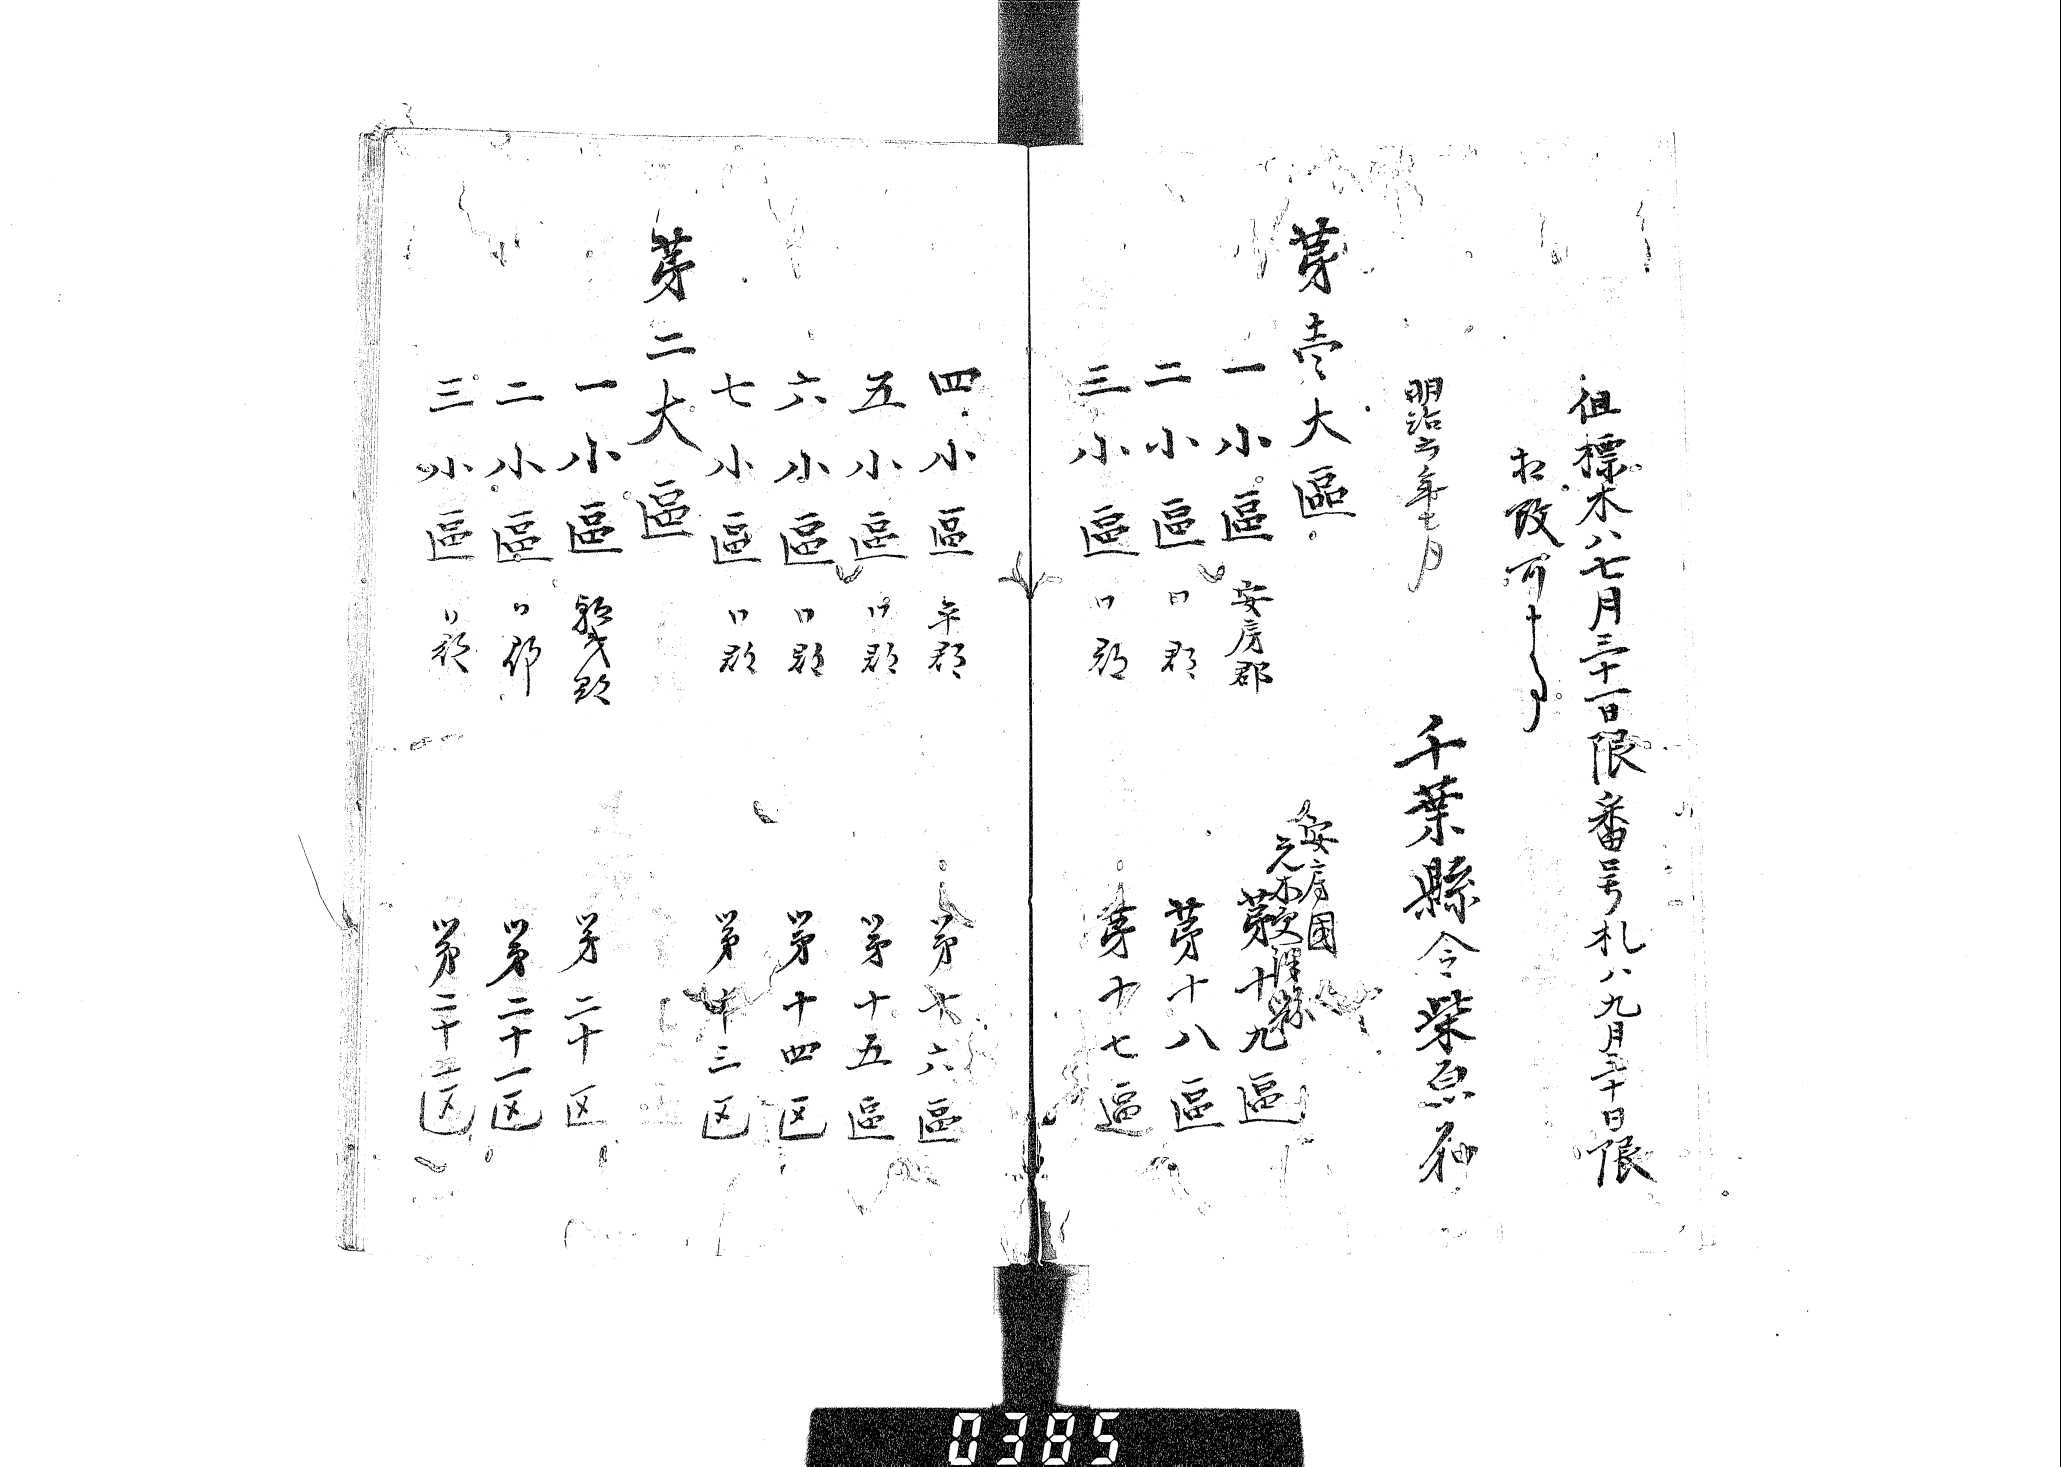 但標木ハ七月三十一日限番号札ハ九月三十日限
相改可申事
明治六年七月
千葉縣令柴原和
第壱大區
安房國
元木更津縣
一小區 安房郡 第十九區
二小區 同郡 第十八區
三小區 同郡 第十七區
四小區 平郡 第十六區
五小區 同郡 第十五區
六小區 同郡 第十四区
七小區 同郡 第十三区
第二大區
一小區 朝夷郡 第二十区
二小區 同郡 第二十一区
三小區 同郡 第二十二区
0385